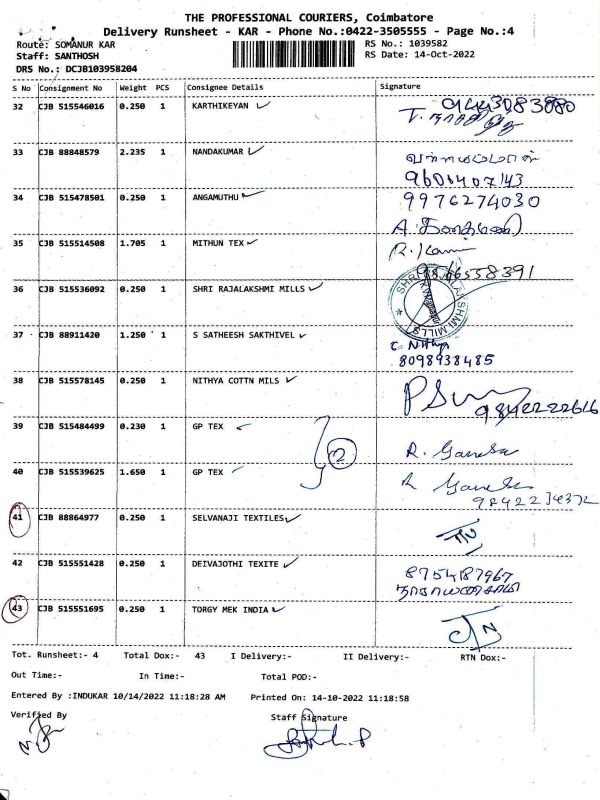 THE PROFESSIONAL COURIERS, Coimbatore
Delivery Runsheet - KAR - Phone No.:0422-3505555 - Page No.:4
Route: SOMANUR KAR
RS No.: 1039582
Staff: SANTHOSH
RS Date: 14-Oct-2022
DRS No.: DCJB103958204
S No Consignment No Weight PCS Consignee Details Signature
32 CJB 515546016 0.250 1 KARTHIKEYAN
33 CJB 88848579 2.235 1 NANDAKUMAR
9600407143
34 CJB 515478501 0.250 1 ANGAMUTHU 9976274030
35 CJB 515514508 1.705 1 MITHUN TEX
36 CJB 515536092 0.250 1 SHRI RAJALAKSHMI MILLS
37 CJB 88911420 1.250 1 S SATHEESH SAKTHIVEL
C. Nithya
8098938485
38 CJB 515578145 0.250 1 NITHYA COTTN MILS
9842222616
39 CJB 515484499 0.230 1 GP TEX
2
R. Ganesa
40 CJB 515539625 1.650 1 GP TEX
9842234372
41 CJB 88864977 0.250 1 SELVANAJI TEXTILES
42 CJB 515551428 0.250 1 DEIVAJOTHI TEXITE
8754187967
நாராயணசாமி
43 CJB 515551695 0.250 1 TORGY MEK INDIA
Tot. Runsheet:- 4 Total Dox:- 43 I Delivery:- II Delivery:- RTN Dox:-
Out Time:- In Time:- Total POD:-
Entered By :INDUKAR 10/14/2022 11:18:28 AM Printed On: 14-10-2022 11:18:58
Verified By Staff Signature